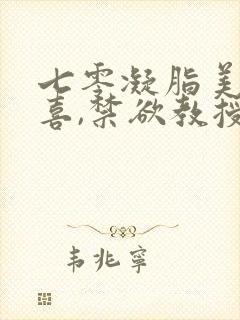 七零凝脂美
喜,禁欲教授
韦兆宁